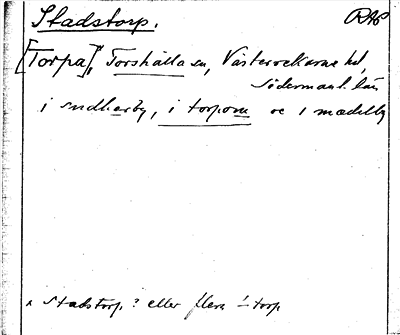 Stadstorp. RAP
[Torpa]x, Torshälla sn, Västerrekarne hd,
Södermanl. län
i sundharby, i torpom oc i mædelby
x Stadstorp? eller flera -torp